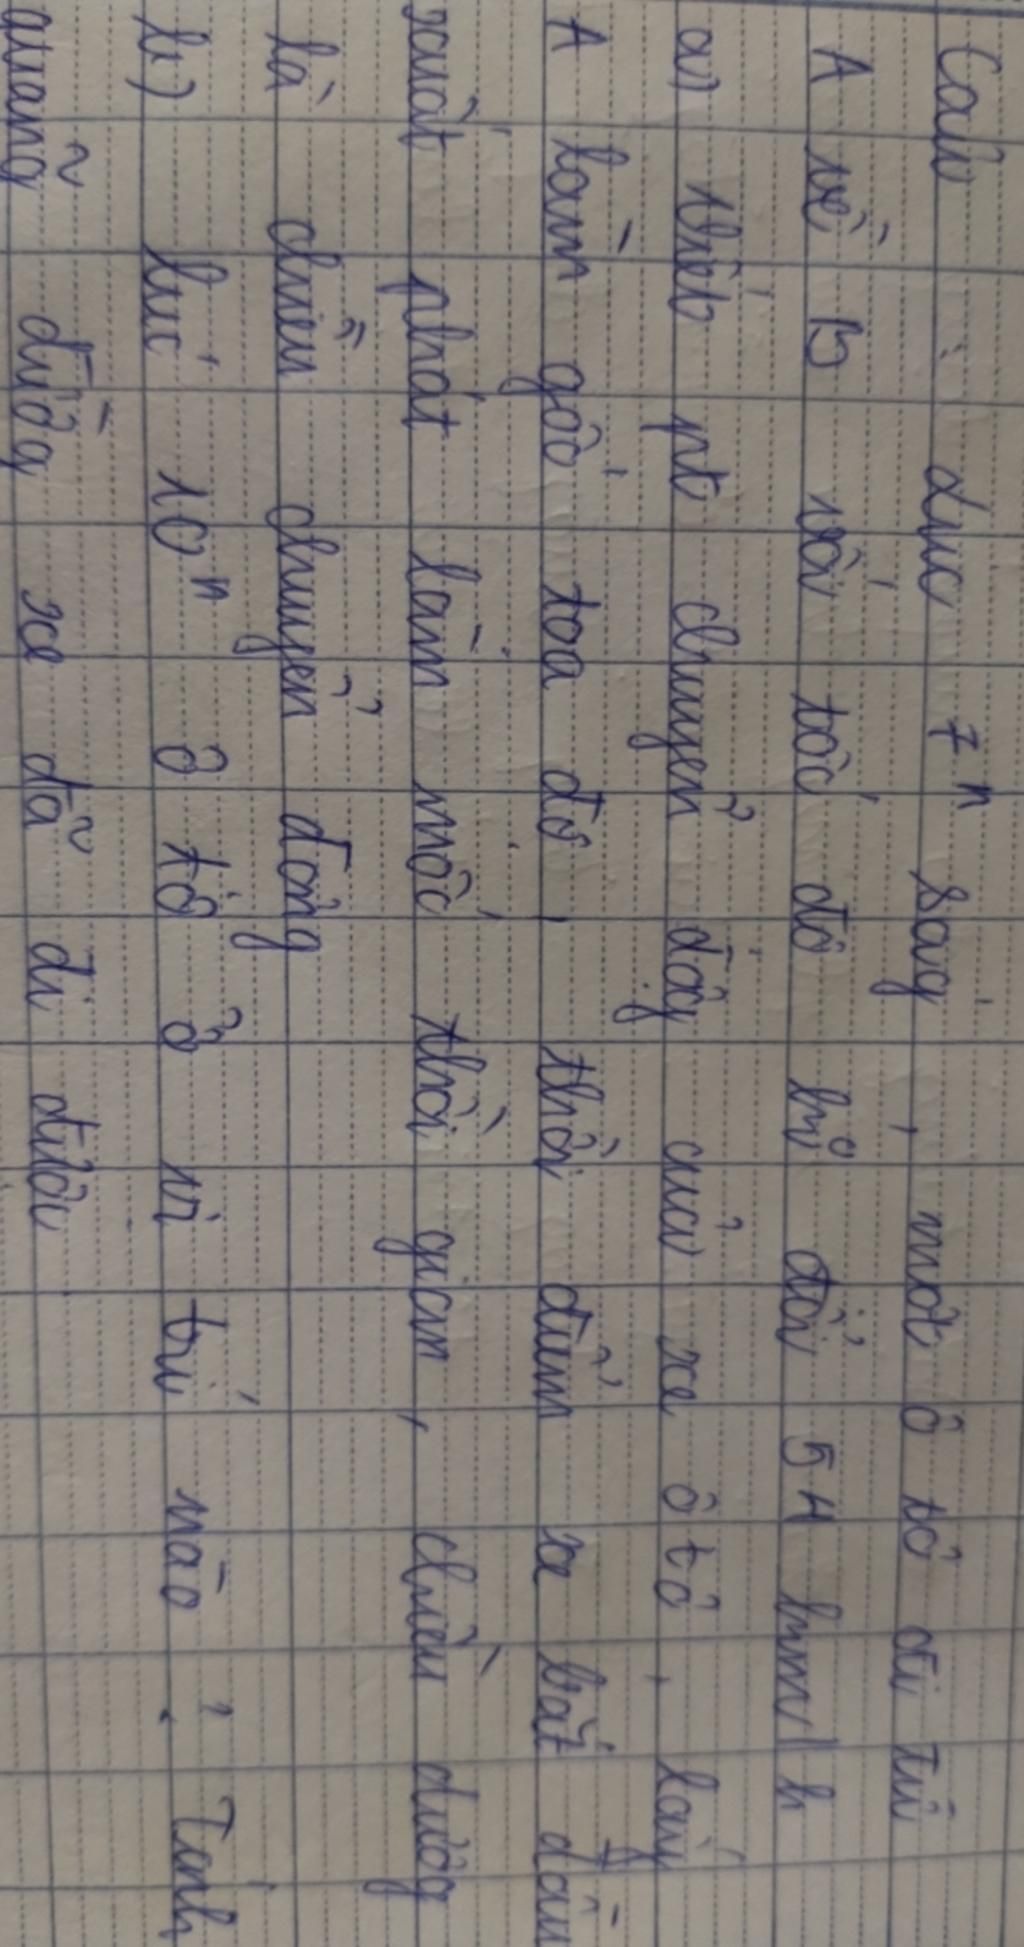 Câu : Lúc 7h ság, một ô tô đi từ
A về B với tốc độ kổ đổi 54 km/h
a) Viết pt chuyển độg của xe ô tô, lấy
A làm gốc toạ độ, thời điểm xe bắt đầu
xuất phát làm mốc thời gian, chiều dươg
là chiều chuyển động
b) lúc 10h ô tô ở vị trí nào ? Tính
quãng đườg xe đã đi được